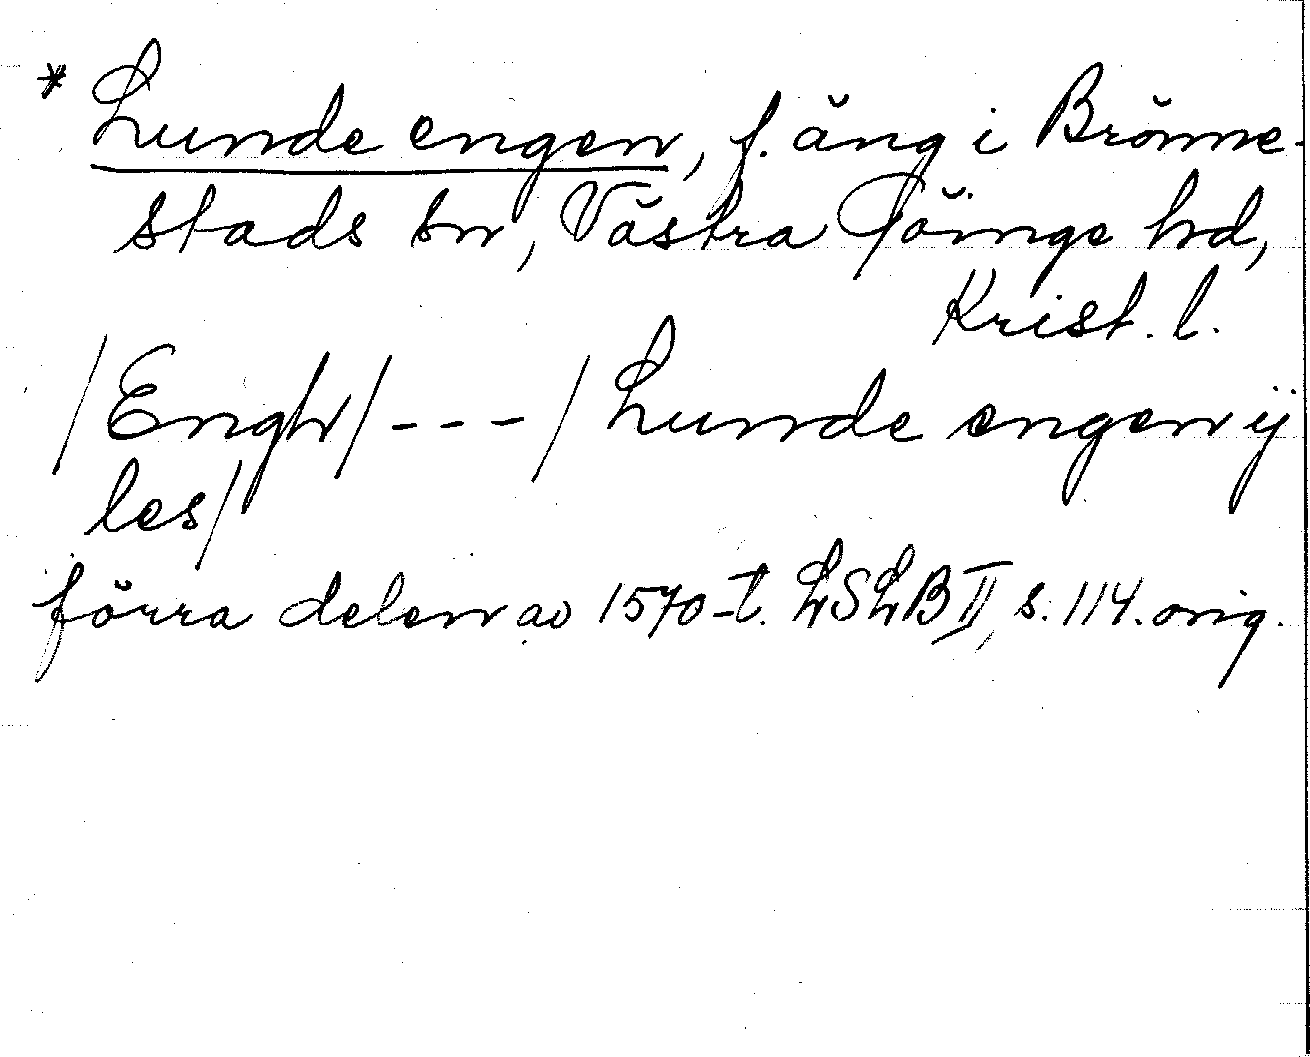 * Lunde engen, f. äng i Brönne-
stads sn, Västra Göinge hd,
Krist. l.
/Engh/ --- / Lunde engen ij
les/
förra delen av 1570-t. LSLB II, s. 114. orig.